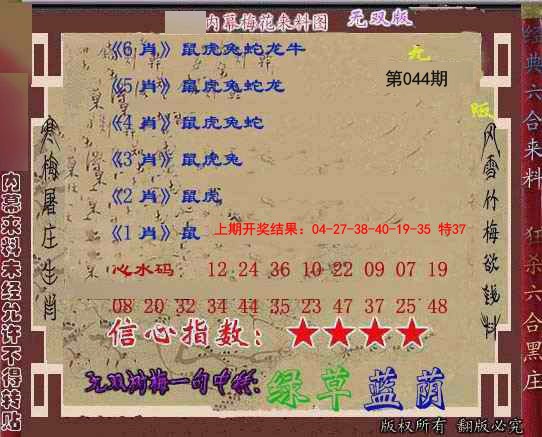 内幕梅花来料图 无双版
经典六合来料 狂杀六合黑庄
《6 肖》鼠虎兔蛇龙牛
无
第044期
《5 肖》鼠虎兔蛇龙
版
《4 肖》鼠虎兔蛇
《3 肖》鼠虎兔
《2 肖》鼠虎
《1 肖》鼠
上期开奖结果：04-27-38-40-19-35 特37
心水码： 12 24 36 10 22 09 07 19
08 20 32 34 44 35 23 47 37 25 48
信心指数：★★★★
无双浏梅一句中特：绿草蓝荫
寒梅屠庄生肖
风雪竹梅欲钱料
内幕来料未经允许不得转贴
版权所有 翻版必究